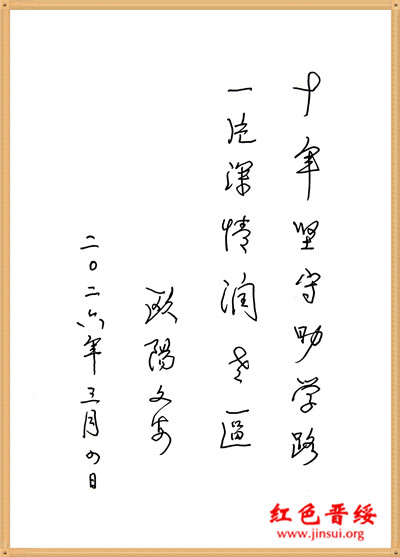 十年坚守助学路
一片深情润老區
欧陽文安
二〇二六年三月四日
红色晋绥
www.jinsui.org